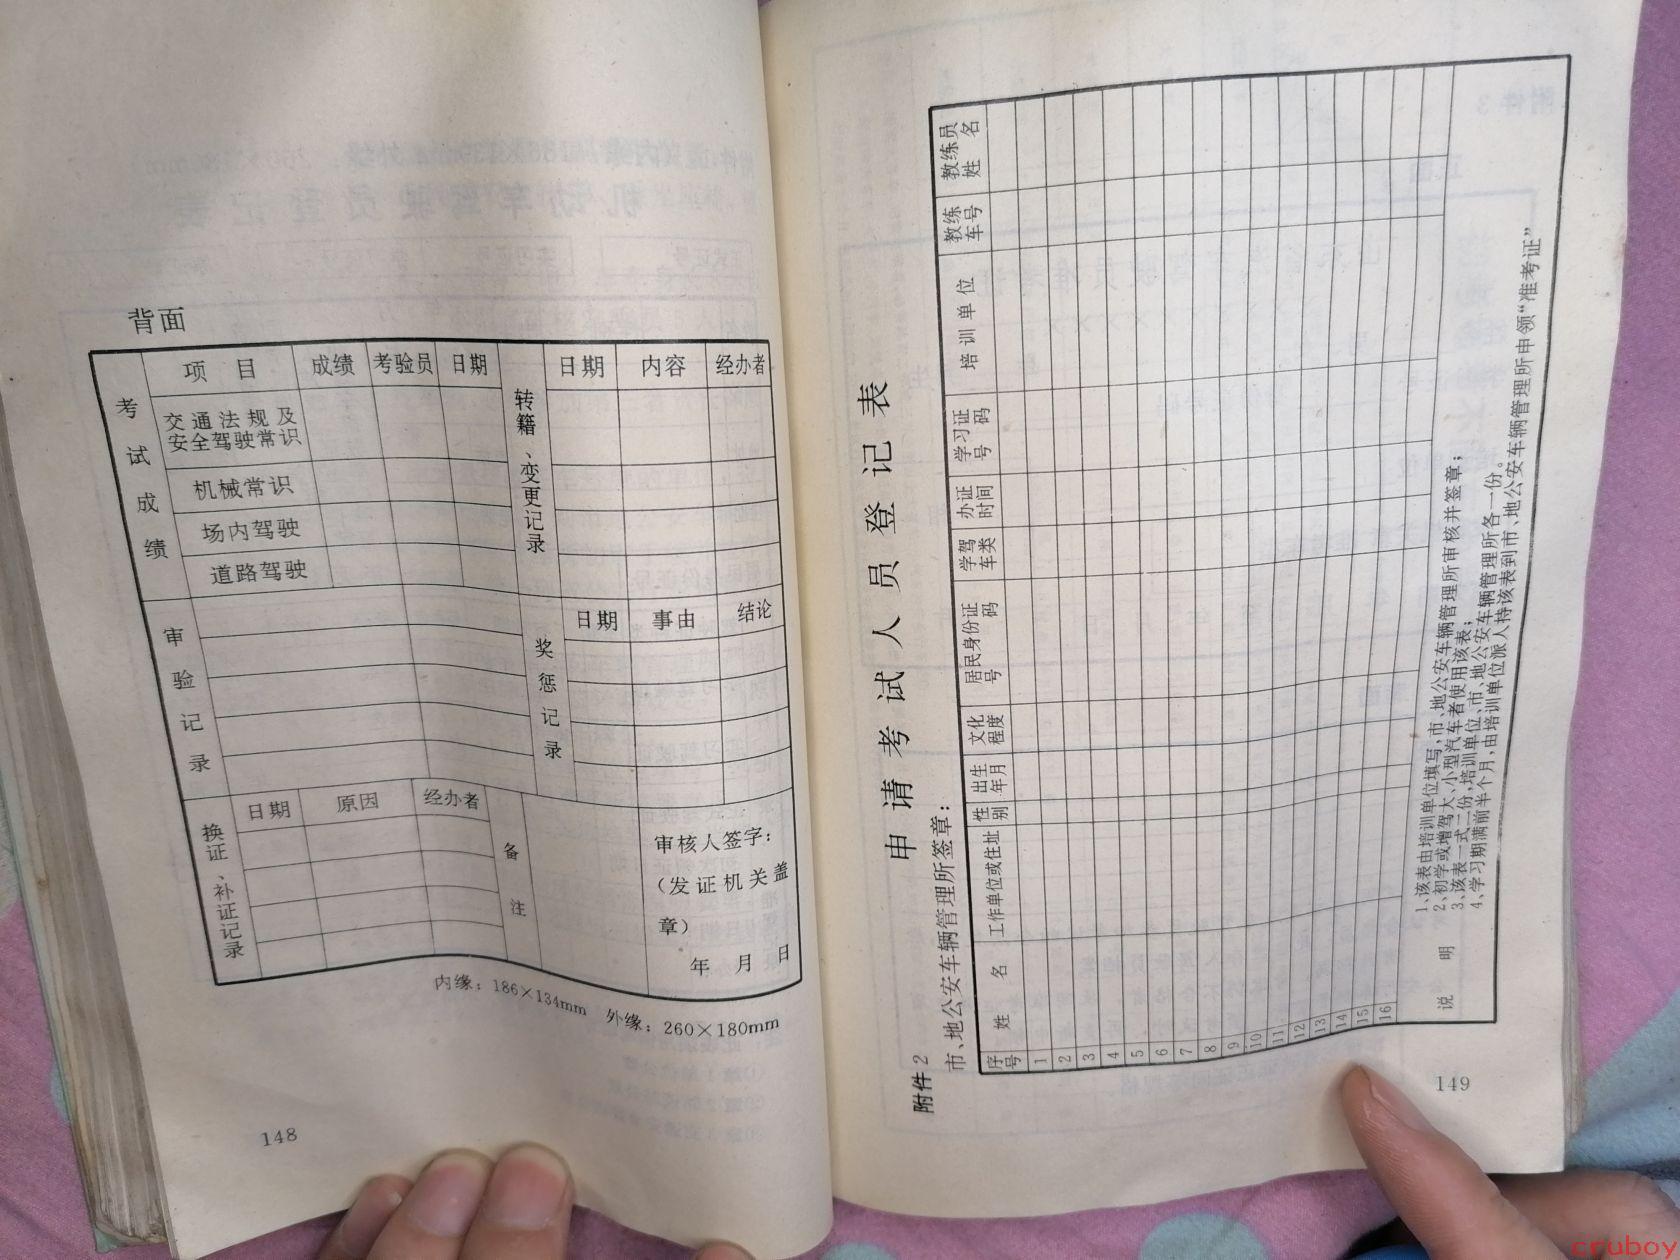 背面
考试成绩
项 目 成绩 考验员 日期
交通法规及
安全驾驶常识
机械常识
场内驾驶
道路驾驶
转籍、变更记录
日期 内容 经办者
审验记录
奖惩记录
日期 事由 结论
换证、补证记录
日期 原因 经办者
备注
审核人签字:
(发证机关盖
章)
年 月 日
内缘:186×134mm 外缘:260×180mm
148
附件2
申请考试人员登记表
市、地公安车辆管理所签章:
序号 姓 名 工作单位或住址 性别 出生年月 文化程度 居民身份证号码 学驾车类 办证时间 学习证号码 培训单位 教练车号 教练员姓名
1
2
3
4
5
6
7
8
9
10
11
12
13
14
15
16
说 明
1、该表由培训单位填写,市、地公安车辆管理所审核并签章;
2、初学或增驾大、小型汽车者使用该表;
3、该表一式二份,培训单位,市、地公安车辆管理所各一份。
4、学习期满前半个月,由培训单位派人持该表到市、地公安车辆管理所申领“准考证”
149
cruboy